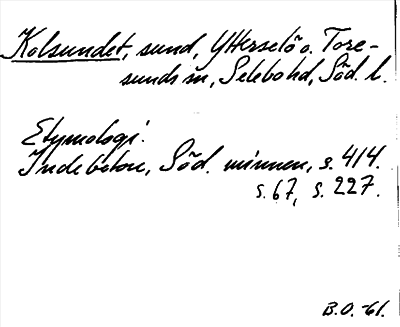 Kolsundet, sund, Ytterselö o. Tore-
sunds sn, Selebo hd, Söd. l.
Etymologi.
Indebetou, Söd. minnen, s. 414.
s. 67, s. 227.
B.O. -61.